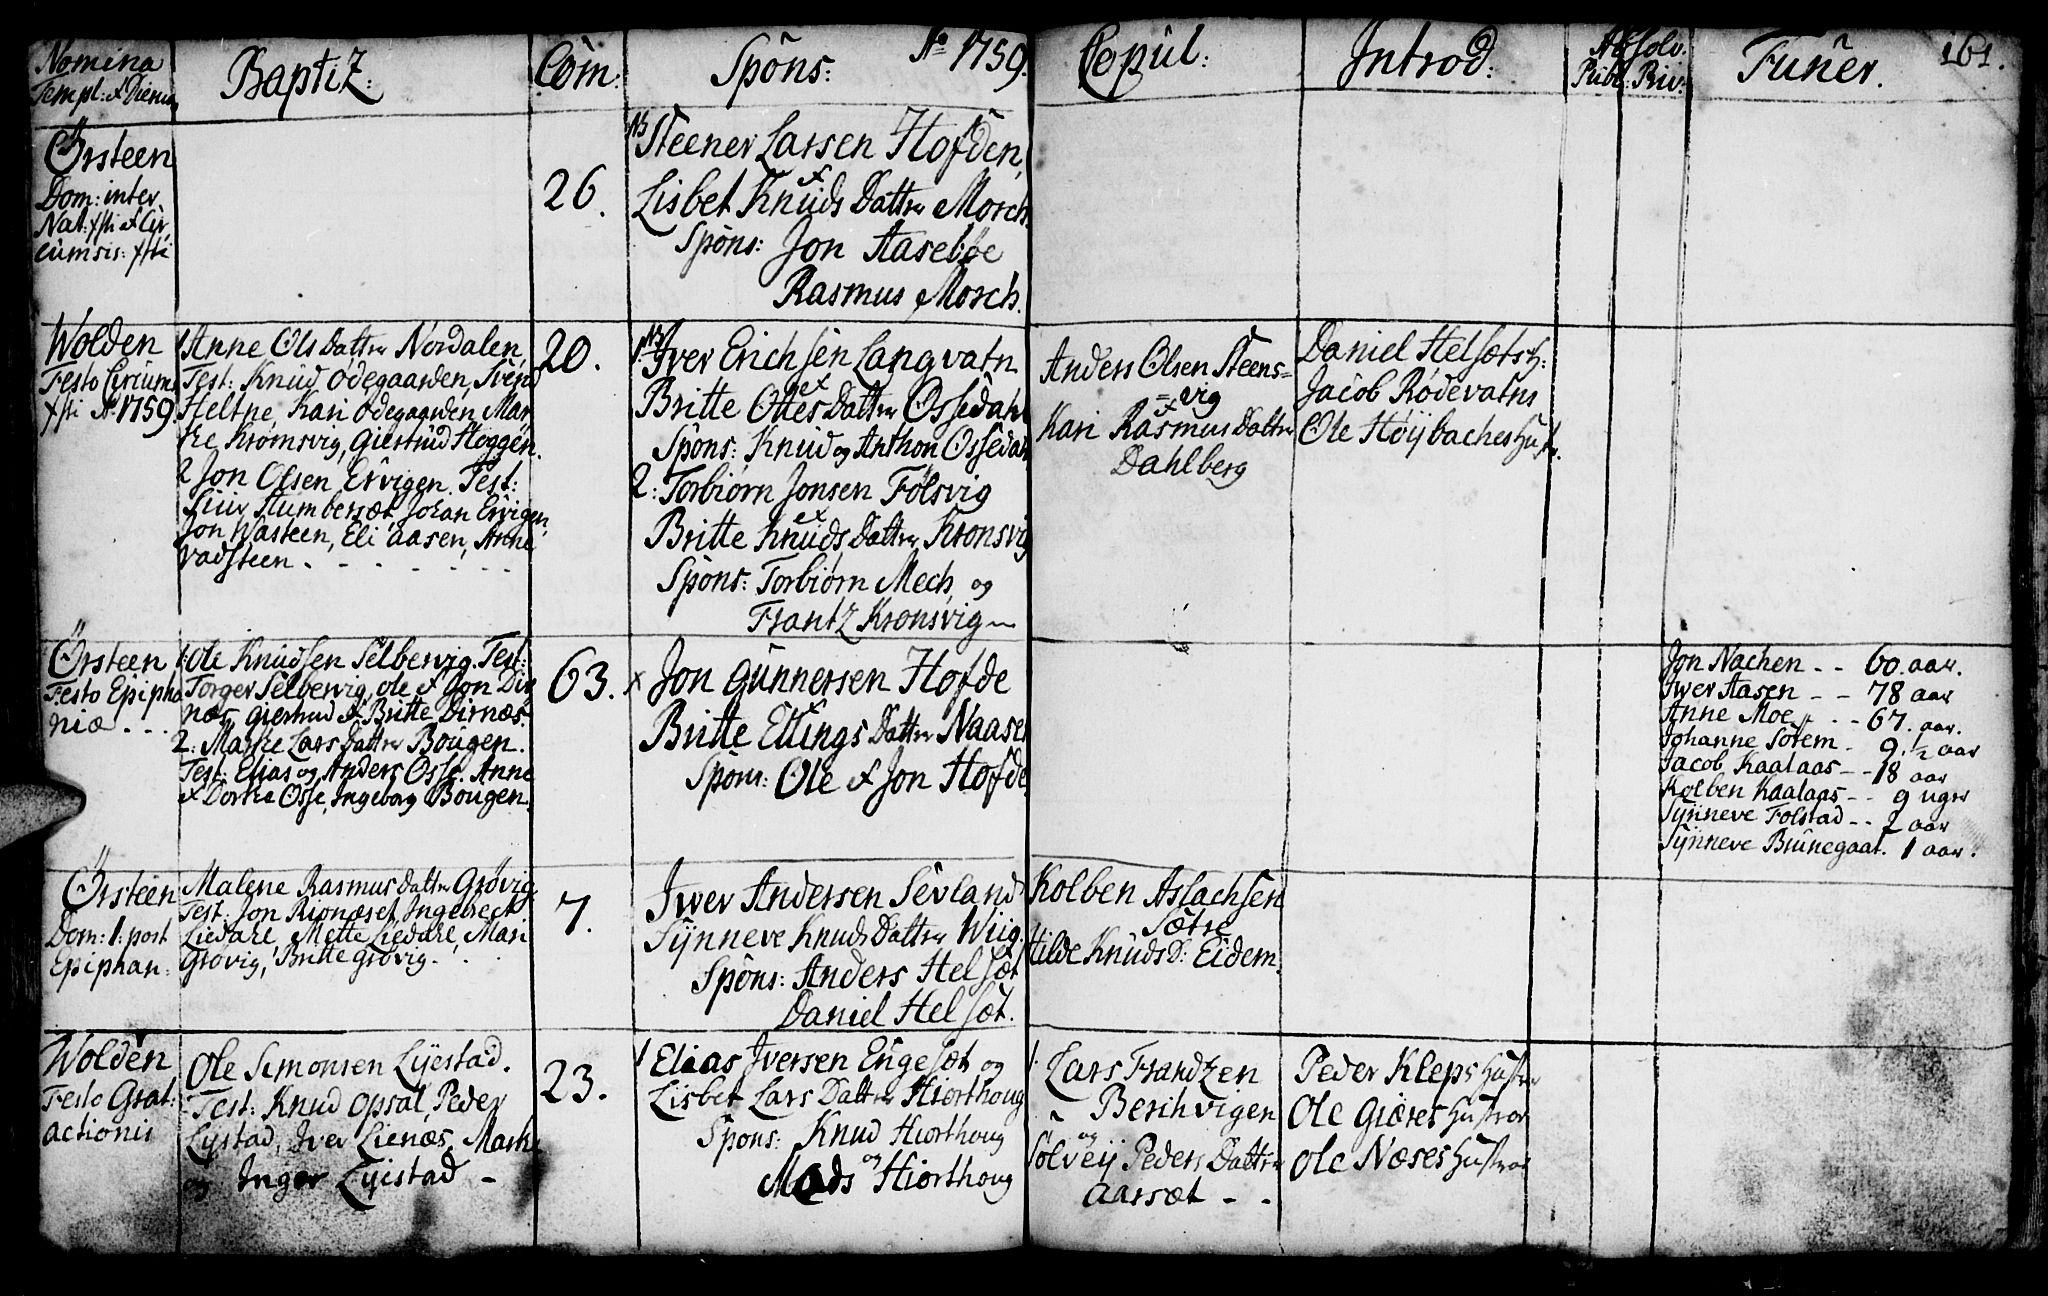 Nomina
Templ: & Dierum
Baptiz:
Com:
Spons:
Ao 1759.
Copul:
Introd:
Absolv:
Publ: Priv:
Funer.
161.
Örsteen
Dom: inter
Nat: xsti et Cir
cumsis: xsti
26.
Steener Larsen Hofden,
&
Lisbet Knuds Datter Morch.
Spons: Jon Aaseböe
Rasmus Morch.
Wolden
Festo Circums
xsti Ao 1759.
1 Anne Ols Datter Nordalen,
Test: Knud Odegaarden, Svend
Heltne, Kari Odegaarden, Mar
the Kromsvig, Giertrud Hoggen.
2 Jon Olsen Ervigen. Test:
Siur Humbersæt, Johan Ervigen,
Jon Wasteen, Eli Aasen, Anne
Vadsteen - - - - - -
20.
1. Iver Erichsen Langvatn
&
Britte Ottes Datter Ossedahl
Spons: Knud og Anthon Ossedahl
2: Torbiørn Jonsen Folsvig
&
Britte Knuds Datter Kronsvig
Spons: Torbiørn Mech, og
Frantz Kronsvig
Anders Olsen Steens=
=vig
&
Kari Rasmus Datter
Dahlberg
Daniel Helsætsh:
Jacob Rødevatns
Ole Høijbaches Hustr.
Örsteen
Festo Epipha
niæ - - -
1: Ole Knudsen Selbervig. Test:
Torger Selbervig, Ole & Jon Dir
næs, Giertrud & Britte Dirnæs.
2: Marte Lars Datter Bougen.
Test: Elias og Anders Osse. Anne
& Dorthe Osse, Ingeborg Bougen.
63.
x Jon Gunnersen Hofde
&
Britte Ellings Datter Naasen
Spons: Ole & Jon Hofde
Jon Nachen - - 60. aar.
Iwer Aasen - - 78 aar
Anne Moe - - 67. aar.
Johanne Sorem - 9 ½ aar
Jacob Kaalaas - - 18 aar
Kolben Kaalaas - - 9 uger
Synneve Folstad - - 2 aar
Synneve Brunegaat. 1 aar.
Örsteen
Dom: 1: post
Epiphan:
Malene Rasmus Datter Grøvig
Test: Jon Rionæset, Ingebrect
Liedare, Mette Liedare, Mari
Grøvig, Britte Grøvig.
7.
Iwer Andersen Sevland
Synneve Knuds Datter Wiig.
Spons: Anders Helsæt
Daniel Helsæt.
Kolben Aslachsen
Sætre
Hilde Knuds D: Eidem.
Wolden
Festo Grat:
actionis
Ole Simonsen Lyestad.
Test: Knud Opsal, Peder
Lystad, Iver Lienæs, Marthe
og Inger Lyestad -
23.
1 Elias Iversen Engesæt og
Lisbet Lars Datter Hiorthoug
Spons: Knud Hiorthoug
og
Mads Hiorthoug
1. Lars Frandzen
Berihvigen
og
Solveij Peders Datter
Aarsæt - -
Peder Kleps Hustru
Ole Giøres Hustroe
Ole Næses Hustroe